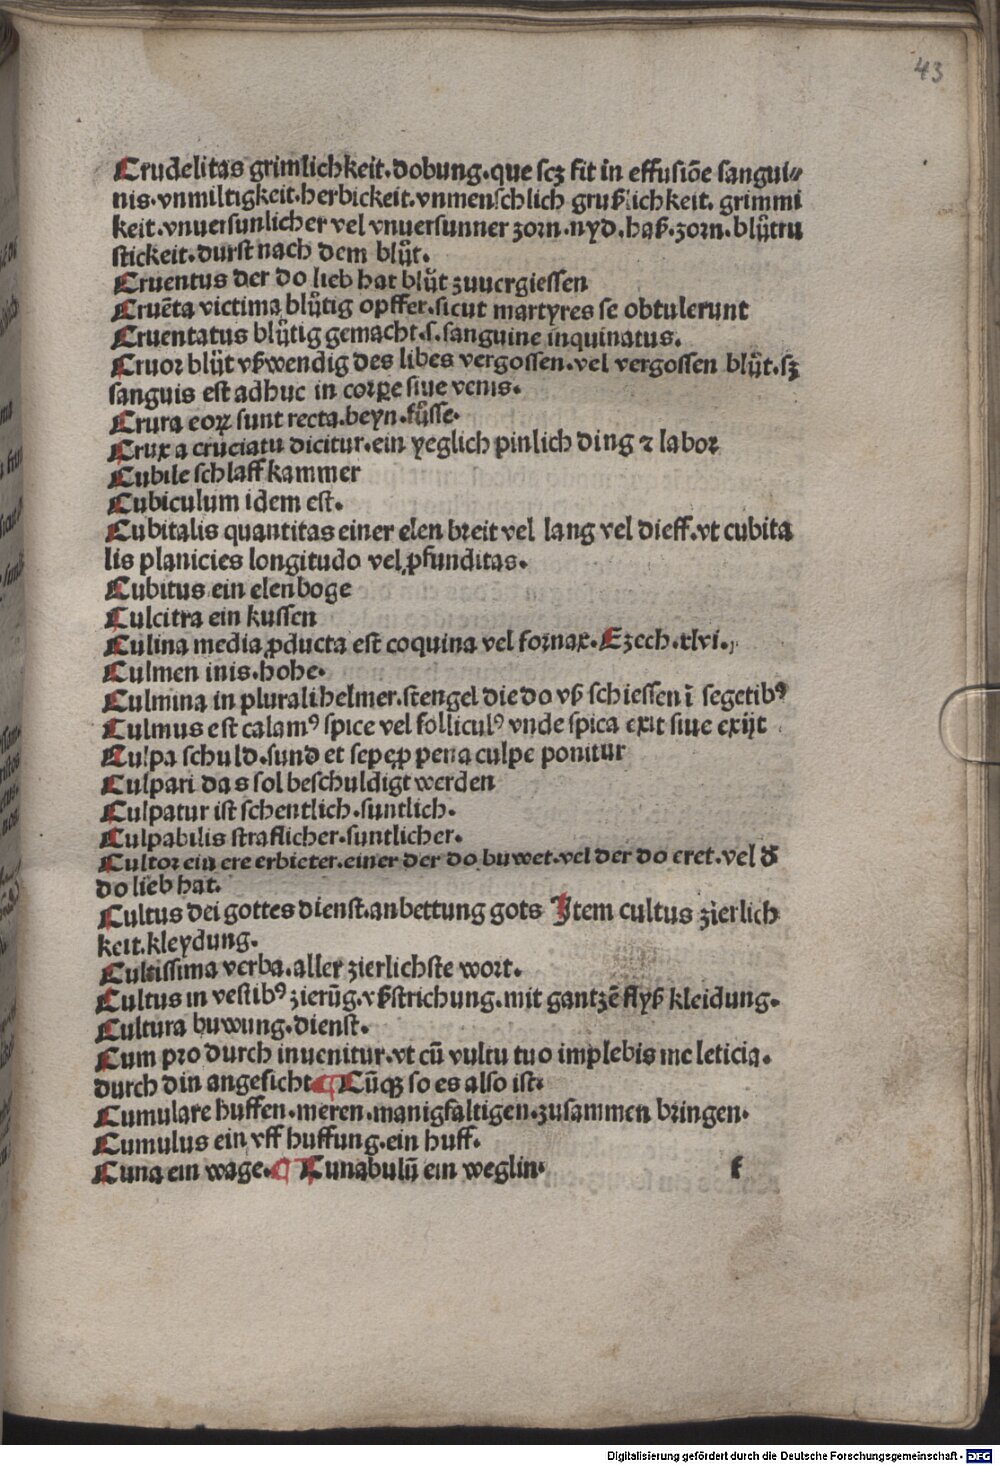 43
Crudelitas grimlichkeit.dobung.que scꝫ fit in effusiõe sangui⸗
nis.vnmiltigkeit.herbickeit.vnmenschlich grußlichkeit. grimmi
keit.vnuersunlicher vel vnuersunner zorn.nyd.haß.zorn.blůtru
stickeit.durst nach dem blůt.
Cruentus der do lieb hat blůt zuuergiessen
Cruẽta victima blůtig opffer.sicut martyres se obtulerunt
Cruentatus blůtig gemacht.s.sanguine inquinatus.
Cruor blůt vßwendig des libes vergossen.vel vergossen blůt.sꝫ
sanguis est adhuc in corꝑe siue venis.
Crura eoꝝ sunt recta.beyn.fůsse.
Crux a cruciatu dicitur.ein yeglich pinlich ding ⁊ labor
Cubile schlaff kammer
Cubiculum idem est.
Cubitalis quantitas einer elen breit vel lang vel dieff.vt cubita
lis planicies longitudo vel ꝓfunditas.
Cubitus ein elenboge
Culcitra ein kussen
Culina media ꝓducta est coquina vel fornax.Ezech.xlvi.
Culmen inis.hohe.
Culmina in plurali helmer.stengel die do vß schiessen ĩ segetibꝰ
Culmus est calamꝰ spice vel folliculꝰ vnde spica exit siue exijt
Culpa schuld.sund et sepe ꝑ pena culpe ponitur
Culpari das sol beschuldigt werden
Culpatur ist schentlich.suntlich.
Culpabilis straflicher.suntlicher.
Cultor ein ere erbieter.einer der do buwet.vel der do eret.vel ď
do lieb hat.
Cultus dei gottes dienst.anbettung gots Item cultus zierlich
keit.kleydung.
Cultissima verba.aller zierlichste wort.
Cultus in vestibꝰ zierũg.vßstrichung.mit gantzẽ flyß kleidung.
Cultura buwung.dienst.
Cum pro durch inuenitur.vt cũ vultu tuo implebis me leticia.
durch din angesicht ¶ Cũqꝫ so es also ist.
Cumulare huffen.meren.manigfaltigen.zusammen bringen.
Cumulus ein vff huffung.ein huff.
Cuna ein wage. ¶ Cunabulũ ein weglin.
f
Digitalisierung gefördert durch die Deutsche Forschungsgemeinschaft - DFG